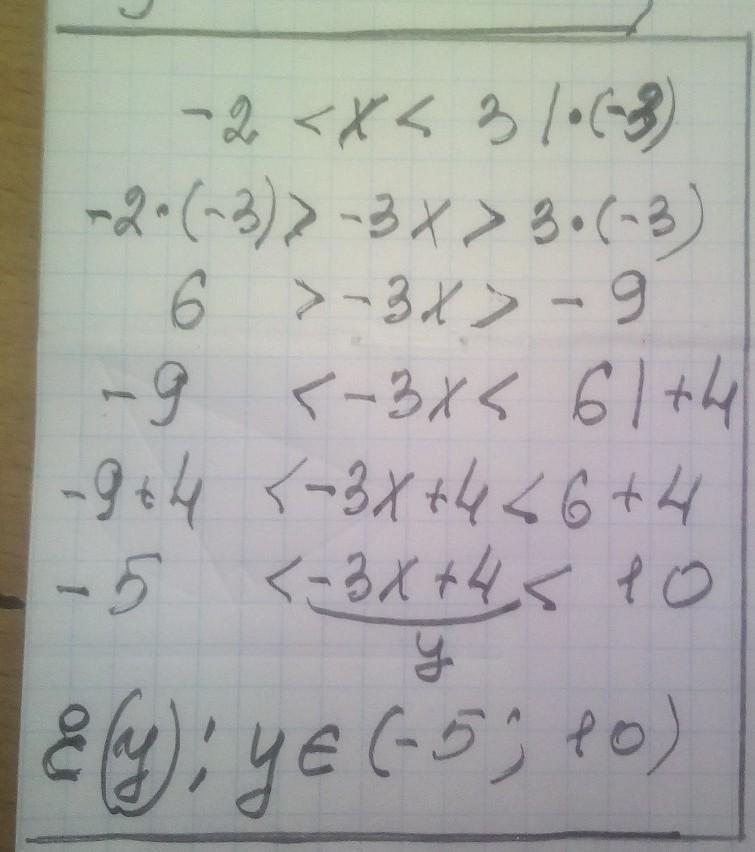 -2 < x < 3 | · (-3)
-2 · (-3) > -3x > 3 · (-3)
6 > -3x > -9
-9 < -3x < 6 | +4
-9+4 < -3x+4 < 6+4
-5 < -3x+4 < 10
y
E(y): y ∈ (-5; 10)